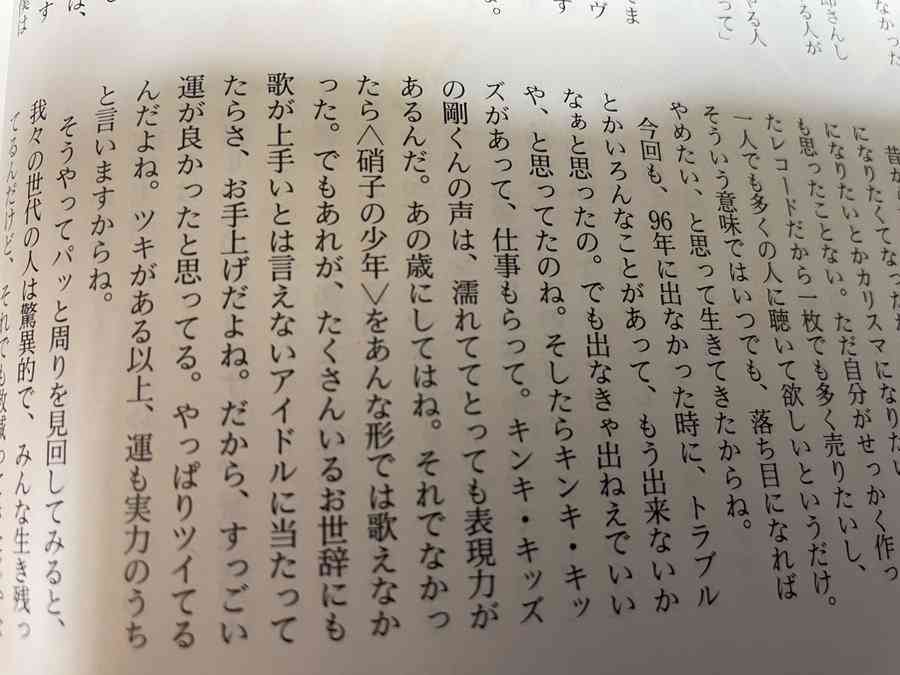 なかった
さんし
る人が
やる人
って」
さま
ヴ
す
よ。
し
は、
す
昔か
になりたくてなった
になりたいとかカリスマになりたい
も思ったことない。ただ自分がせっかく作っ
たレコードだから一枚でも多く売りたいし、
一人でも多くの人に聴いて欲しいというだけ。
そういう意味ではいつでも、落ち目になれば
やめたい、と思って生きてきたからね。
今回も、96年に出なかった時に、トラブル
とかいろんなことがあって、もう出来ないか
なぁと思ったの。でも出なきゃ出ねえでいい
や、と思ってたのね。そしたらキンキ・キッ
ズがあって、仕事もらって。キンキ・キッズ
の剛くんの声は、濡れててとっても表現力が
あるんだ。あの歳にしてはね。それでなかっ
たら〈硝子の少年〉をあんな形では歌えなか
った。でもあれが、たくさんいるお世辞にも
歌が上手いとは言えないアイドルに当たって
たらさ、お手上げだよね。だから、すっごい
運が良かったと思ってる。やっぱりツイてる
んだよね。ツキがある以上、運も実力のうち
と言いますからね。
そうやってパッと周りを見回してみると、
我々の世代の人は驚異的で、みんな生き残っ
てるんだけど、それでも数減って